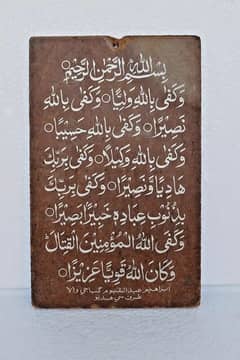 بِسْمِ اللّٰهِ الرَّحْمٰنِ الرَّحِيْمِ
وَكَفٰى بِاللّٰهِ وَلِيًّا ○ وَكَفٰى بِاللّٰهِ
نَصِيْرًا ○ وَكَفٰى بِاللّٰهِ حَسِيْبًا
○ وَكَفٰى بِاللّٰهِ وَكِيْلًا ○ وَكَفٰى بِرَبِّكَ
هَادِيًا وَّنَصِيْرًا ○ وَكَفٰى بِرَبِّكَ
بِذُنُوْبِ عِبَادِهٖ خَبِيْرًا بَصِيْرًا ○
وَكَفَى اللّٰهُ الْمُؤْمِنِيْنَ الْقِتَالَ
وَكَانَ اللّٰهُ قَوِيًّا عَزِيْزًا ○
ابراهيم عبدالقيوم